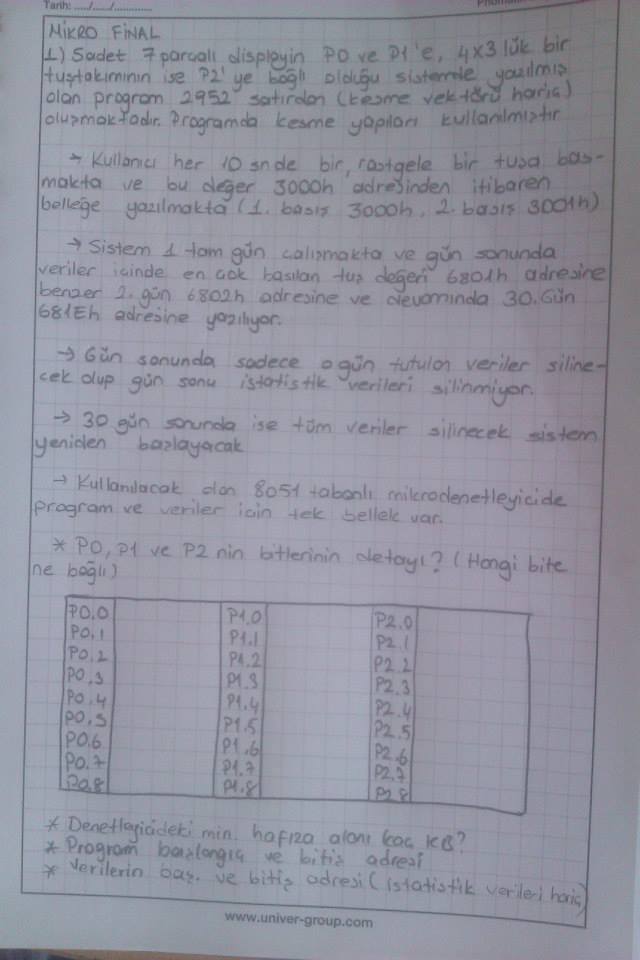 Tarih: ..../..../............
MİKRO FİNAL
1) Sadet 7 parçalı displayin P0 ve P1'e, 4x3 lük bir
tuştakımının ise P2'ye bağlı olduğu sistemde yazılmış
olan program 2952 satırdan (kesme vektörü hariç)
oluşmaktadır. Programda kesme yapıları kullanılmıştır
→ Kullanıcı her 10 snde bir, rastgele bir tuşa bas-
makta ve bu değer 3000h adresinden itibaren
belleğe yazılmakta (1. basış 3000h, 2. basış 3001h)
→ Sistem 1 tam gün çalışmakta ve gün sonunda
veriler içinde en çok basılan tuş değeri 6801h adresine
benzer 2. gün 6802h adresine ve devamında 30. Gün
681Eh adresine yazılıyor.
→ Gün sonunda sadece o gün tutulan veriler siline-
cek olup gün sonu istatistik verileri silinmiyor.
→ 30 gün sonunda ise tüm veriler silinecek sistem
yeniden başlayacak
→ Kullanılacak olan 8051 tabanlı mikrodenetleyicide
program ve veriler için tek bellek var.
* P0, P1 ve P2 nin bitlerinin detayı? (Hangi bite
ne bağlı)
P0.0 P1.0 P2.0
P0.1 P1.1 P2.1
P0.2 P1.2 P2.2
P0.3 P1.3 P2.3
P0.4 P1.4 P2.4
P0.5 P1.5 P2.5
P0.6 P1.6 P2.6
P0.7 P1.7 P2.7
P0.8 P1.8 P2.8
* Denetleyicideki min. hafıza alanı kaç KB?
* Program başlangıç ve bitiş adresi
* Verilerin baş. ve bitiş adresi (istatistik verileri hariç)
www.univer-group.com